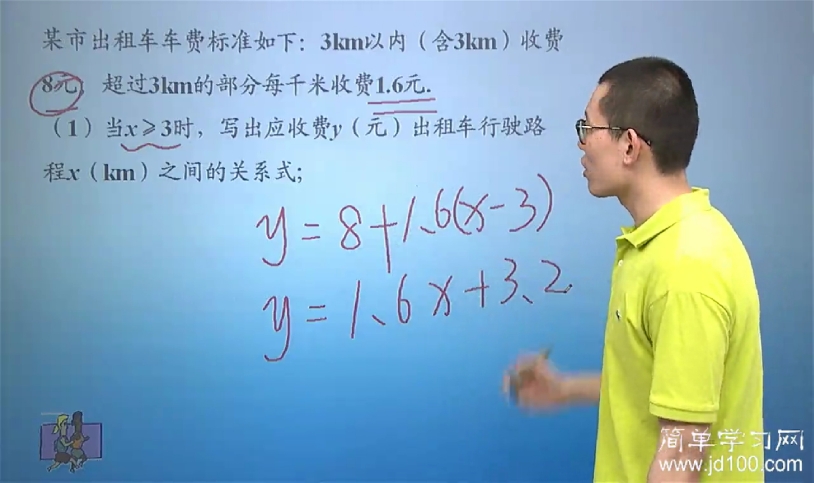 某市出租车车费标准如下：3km以内（含3km）收费
8元；超过3km的部分每千米收费1.6元.
（1）当x≥3时，写出应收费y（元）出租车行驶路
程x（km）之间的关系式；
y=8+1.6(x-3)
y=1.6x+3.2
简单学习网
www.jd100.com